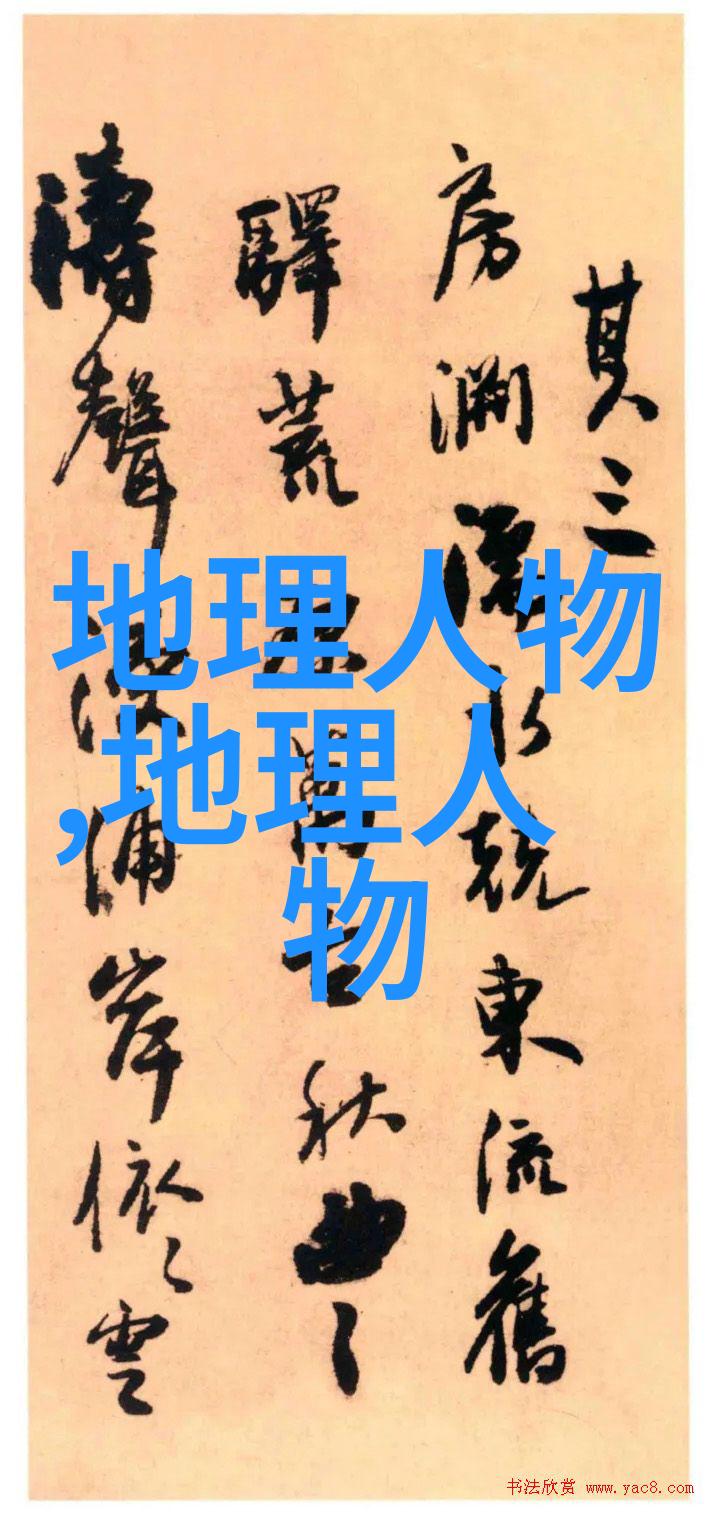 其三
房水競東流舊
驛荒萬古秋曲〻
濤聲浦岸依〻雲
地理人物
,地理人
物
书法欣赏 www.yac8.com